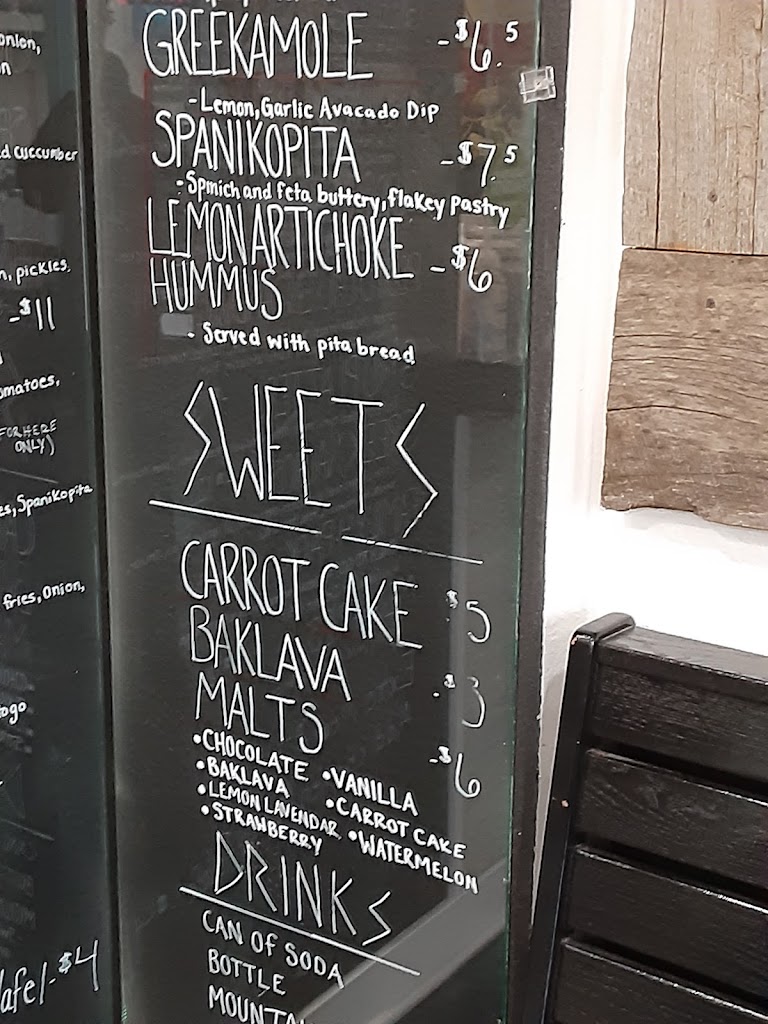 onion,
d cuccumber
pickles.
-$11
omatoes,
FOR HERE
ONLY)
es, Spanikopita
fries, Onion,
togo
afel-$4
GREEKAMOLE -$6.5
-Lemon, Garlic Avacado Dip
SPANIKOPITA -$7.5
- Spinich and feta buttery, flakey pastry
LEMON ARTICHOKE -$6
HUMMUS
- Served with pita bread
SWEETS
CARROT CAKE $5
BAKLAVA -$3
MALTS -$6
•CHOCOLATE •VANILLA
•BAKLAVA •CARROT CAKE
•LEMON LAVENDAR •WATERMELON
•STRAWBERRY
DRINKS
CAN OF SODA
BOTTLE
MOUNTAI